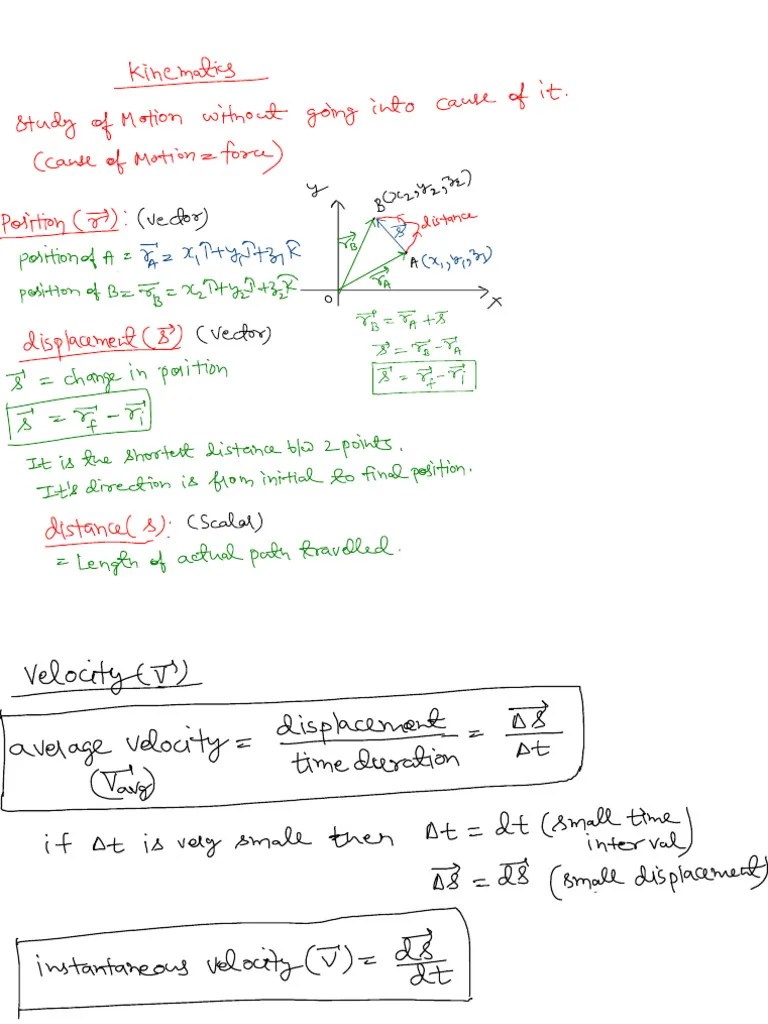 Kinematics
Study of Motion without going into cause of it.
(cause of Motion = force)
Position (r⃗) : (vector)
position of A = r⃗_A = x₁î + y₁ĵ + z₁k̂
position of B = r⃗_B = x₂î + y₂ĵ + z₂k̂
y
B(x₂, y₂, z₂)
distance
s⃗
r⃗_B
A (x₁, y₁, z₁)
r⃗_A
O
X
r⃗_B = r⃗_A + s⃗
s⃗ = r⃗_B - r⃗_A
s⃗ = r⃗_f - r⃗_i
displacement (s⃗) (vector)
s⃗ = change in position
s⃗ = r⃗_f - r⃗_i
It is the shortest distance b/w 2 points.
It's direction is from initial to final position.
distance( s): (Scalar)
= Length of actual path travelled.
Velocity (v⃗)
average velocity = displacement / time duration = Δs⃗ / Δt
(v⃗avg)
if Δt is very small then Δt = dt (small time
interval)
Δs⃗ = ds⃗ (small displacement)
instantaneous velocity (v⃗) = ds⃗ / dt